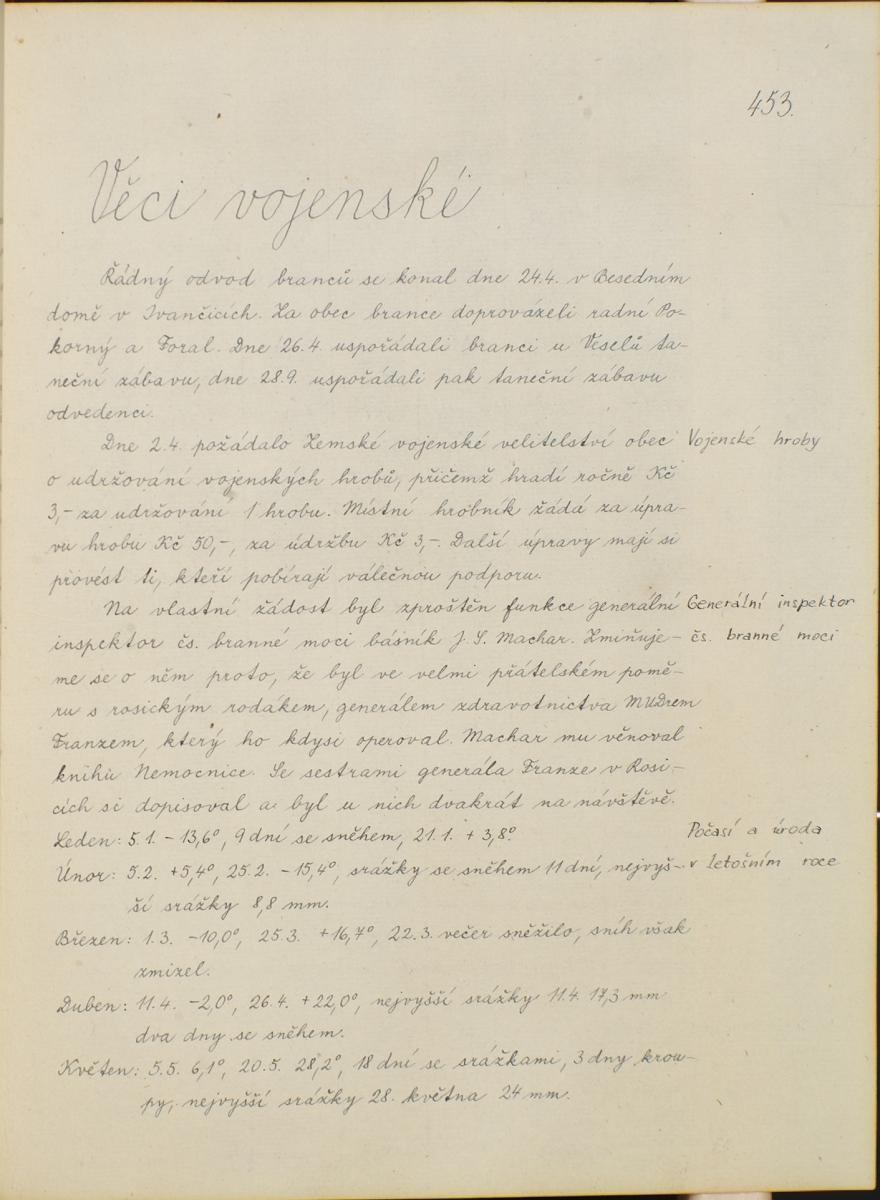 453.
Věci vojenské
Řádný odvod branců se konal dne 24.4. v Besedním
domě v Ivančicích. Za obec brance doprovázeli radní Po-
korný a Foral. Dne 26.4. uspořádali branci u Veselů ta-
neční zábavu, dne 28.9. uspořádali pak taneční zábavu
odvedenci.
Dne 2.4. požádalo Zemské vojenské velitelství obec Vojenské hroby
o udržování vojenských hrobů, přičemž hradí ročně Kč
3,- za udržování 1 hrobu. Místní hrobník žádá za úpra-
vu hrobu Kč 50,-, za údržbu Kč 3,-. Další úpravy mají si
provést ti, kteří pobírají válečnou podporu.
Na vlastní žádost byl zproštěn funkce generální Generální inspektor
inspektor čs. branné moci básník J. S. Machar. Zmiňuje- čs. branné moci
me se o něm proto, že byl ve velmi přátelském pomě-
ru s rosickým rodákem, generálem zdravotnictva MUDrem
Franzem, který ho kdysi operoval. Machar mu věnoval
knihu Nemocnice. Se sestrami generála Franze v Rosi-
cích si dopisoval a byl u nich dvakrát na návštěvě.
Leden: 5.1. -13,6°, 9 dní se sněhem, 21.1. +3,8°. Počasí a úroda
Únor: 5.2. +5,4°, 25.2. -15,4°, srážky se sněhem 11 dní, nejvyš- v letošním roce
ší srážky 8,8 mm.
Březen: 1.3. -10,0°, 25.3. +16,7°, 22.3. večer sněžilo, sníh však
zmizel.
Duben: 11.4. -2,0°, 26.4. +22,0°, nejvyšší srážky 11.4. 17,3 mm
dva dny se sněhem.
Květen: 5.5. 6,1°, 20.5. 28,2°, 18 dní se srážkami, 3 dny krou-
py, nejvyšší srážky 28. května 24 mm.